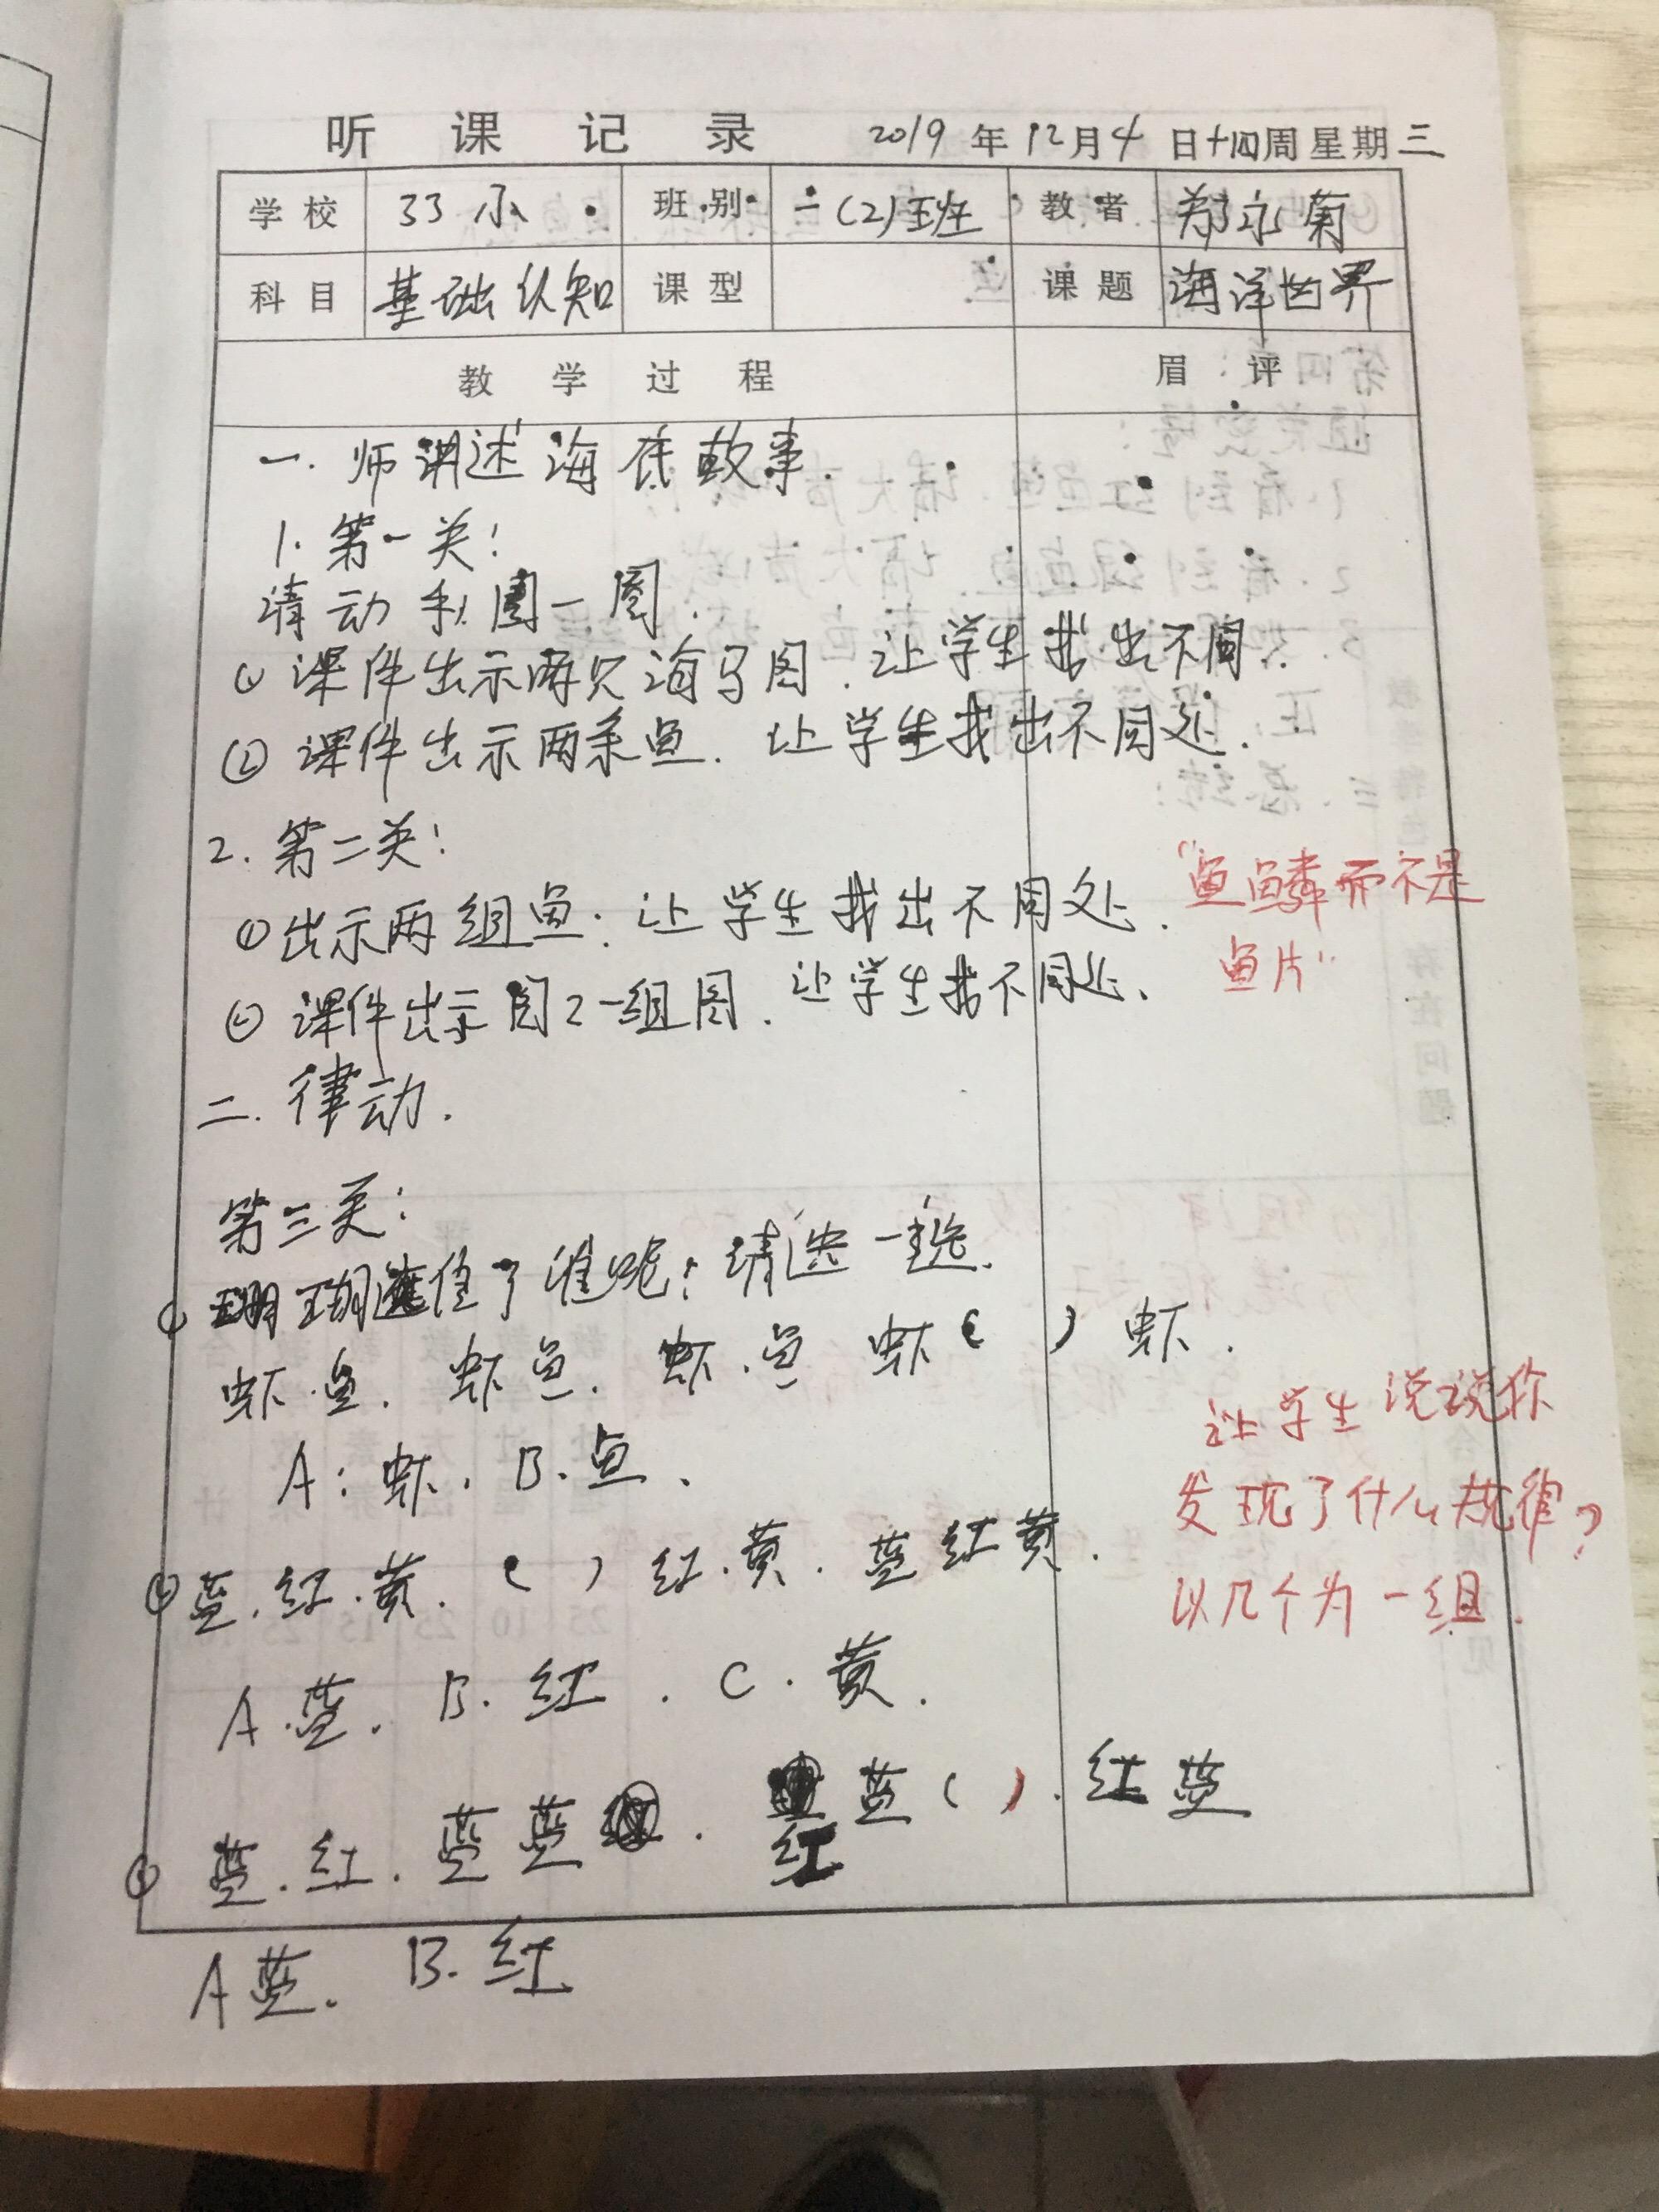 听课记录 2019年12月4日十四周星期三
学校 33小 班别 二(2)班 教者 郑永菊
科目 基础认知 课型 课题 海洋世界
教学过程 眉评
一.师讲述海底故事
1.第一关:
请动手圈一圈.
①课件出示两只海马图.让学生找出不同.
②课件出示两条鱼.让学生找出不同处.
2.第二关:
①出示两组鱼:让学生找出不同处.
"鱼鳞而不是
鱼片"
②课件出示图2一组图.让学生找不同处.
二.律动.
第三关:
①珊瑚遮住了谁呢?请选一选.
虾.鱼.虾鱼.虾.鱼 虾( )虾.
A:虾.B.鱼.
让学生说说你
发现了什么规律?
以几个为一组.
②蓝.红.黄.( )红.黄.蓝红黄.
A.蓝.B.红.C.黄.
③蓝.红.蓝蓝.红蓝( ).红蓝
A蓝.B.红